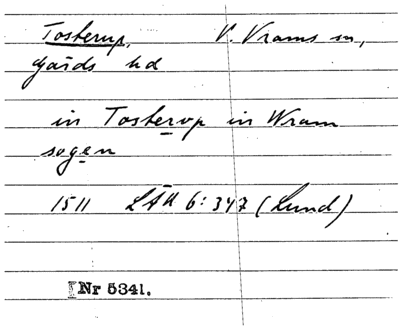 Tosterup, V. Vrams sn,
Gärds hd
in Tosterop in Wram
sogen
1511 LÄU 6:347 (Lund)
Nr 5341.